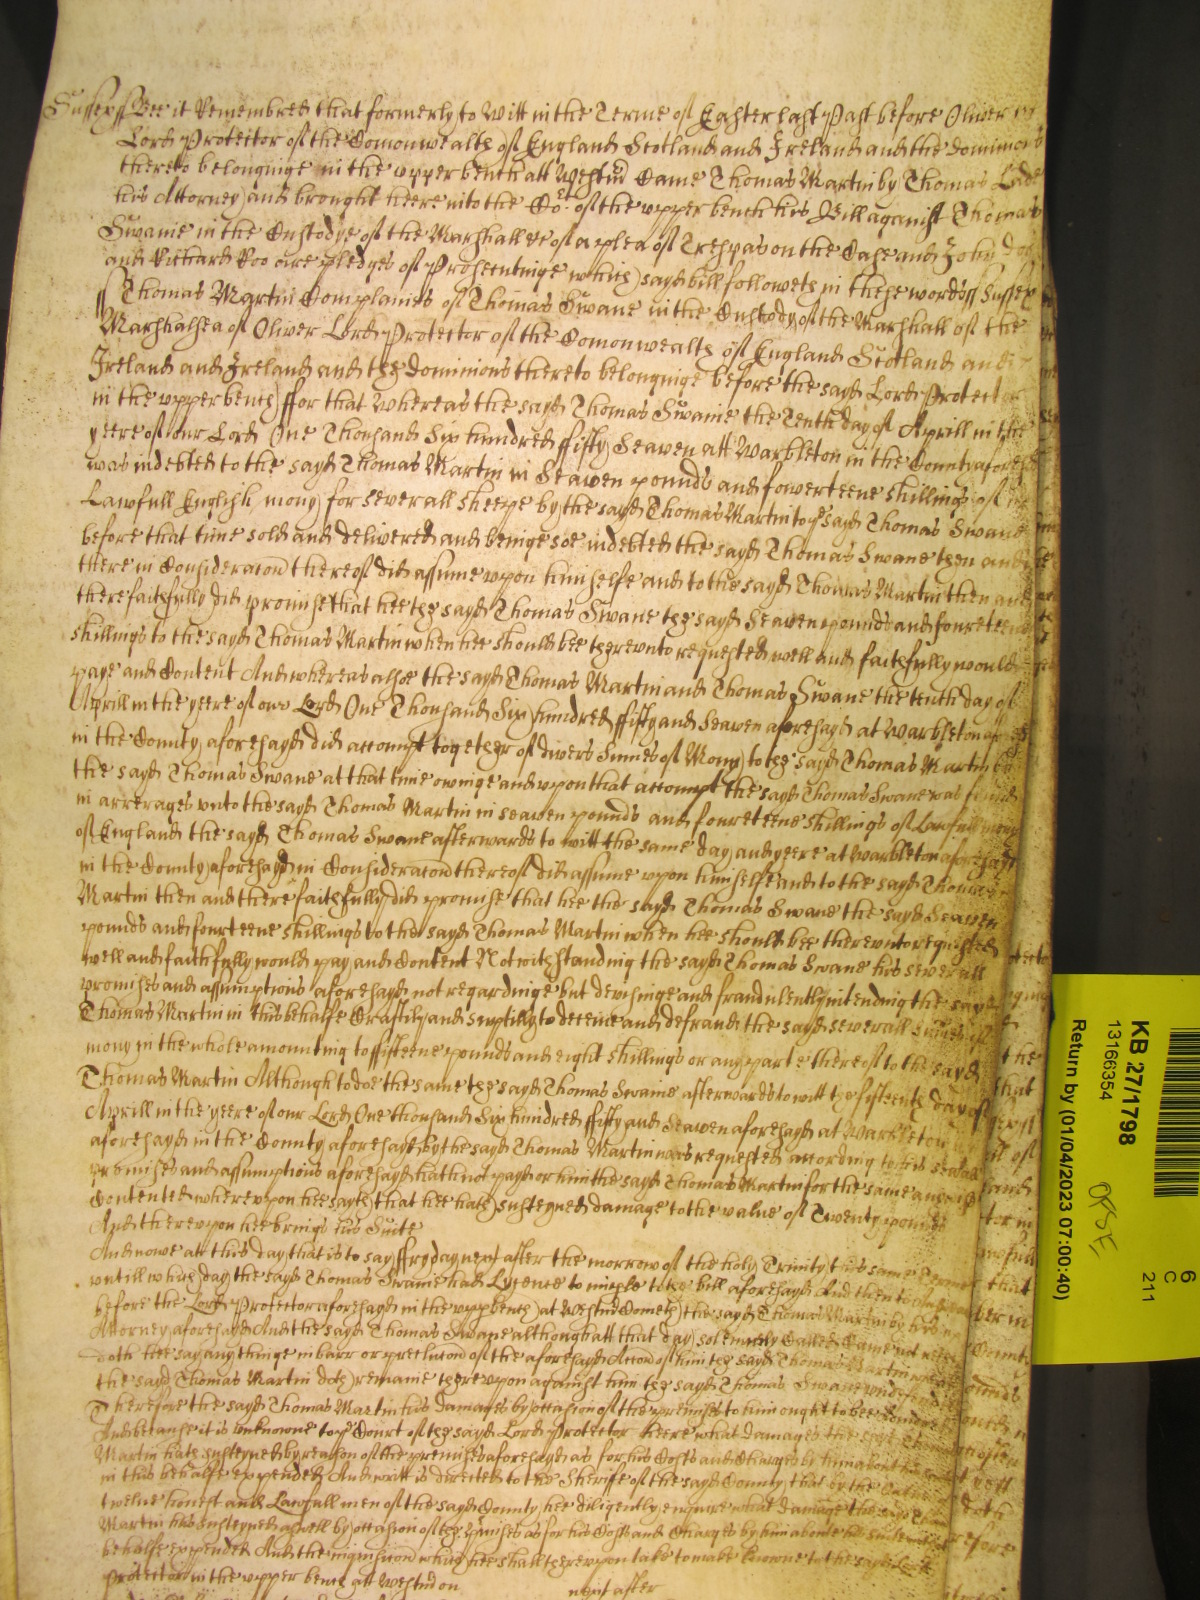 Sussex ss Bee it Remembred that formerly to Witt in the Terme of Easter last Past before Oliver
Lord Protector of the Comonwealth of England Scotland and Ireland and the dominions
thereto belonginge in the upper bench att Westm̄ Came Thomas Martin by Thomas
his Attorney and brought heere into the Co:rt of the upper bench his Bill against Thomas
Swane in the Custodye of the Marshall &c of a plea of Trespas on the Case and John Doo
and Richard Roo are pledges of Prosecutinge which sayd bill followeth in these words ss Sussex
ss Thomas Martin Complaines of Thomas Swane in the Custody of the Marshall of the
Marshalsea of Oliver Lord Protector of the Comonwealth of England Scotland and
Ireland and Ireland and the dominions thereto belonginge before the sayd Lord Protector
in the upper bench ffor that Whereas the sayd Thomas Swane the Tenth day of Aprill in the
yeere of our Lord One Thousand Six hundred ffifty Seaven att Warbleton in the County aforesayd
was indebted to the sayd Thomas Martin in Seaven pounds and fowerteene shillings of
Lawfull English mony for severall sheepe by the sayd Thomas Martin to ye sayd Thomas Swane
before that time sold and delivered and beinge soe indebted the sayd Thomas Swane then and
there in Consideracon thereof did assume upon himselfe and to the sayd Thomas Martin then and
there faithfully did promise that hee the sayd Thomas Swane the sayd Seaven pounds and foureteene
shillings to the sayd Thomas Martin when hee should bee thereunto requested well and faithfully would
paye and Content And whereas alsoe the sayd Thomas Martin and Thomas Swane the tenth day of
Aprill in the yeere of our Lord One Thousand Six hundred ffifty and Seaven aforesayd at Warbleton aforesayd
in the County aforesayd did accompt together of divers Summes of Mony to the sayd Thomas Martin by
the sayd Thomas Swane at that time owinge and upon that accompt the sayd Thomas Swane was found
in arrerages unto the sayd Thomas Martin in seaven pounds and foureteene shillings of Lawfull mony
of England the sayd Thomas Swane afterwards to witt the same day and yeere at Warbleton aforesayd
in the County aforesayd in Consideracon thereof did assume upon himselfe and to the sayd Thomas
Martin then and there faithfully did promise that hee the sayd Thomas Swane the sayd Seaven
pounds and fourteene shillings to the sayd Thomas Martin when hee should bee thereunto requested
well and faithfully would pay and Content Notwithstanding the sayd Thomas Swane his severall
promises and assumptions aforesayd not regardinge but devisinge and fraudulently intending the sayd
Thomas Martin in this behalfe Craftily and suptilly to deceive and defraud the sayd severall Summes of
mony in the whole amounting to ffifteene pounds and eight shillings or any parte thereof to the sayd
Thomas Martin Although to doe the same the sayd Thomas Swane afterwards to witt the fifteenth day of
Aprill in the yeere of our Lord One thousand Six hundred fifty and Seaven aforesayd at Warbleton
aforesayd in the County aforesayd by the sayd Thomas Martin was requested according to his severall
promises and assumptions aforesayd hath not payd or him the sayd Thomas Martin for the same any wise
Contented whereupon hee sayth that hee hath susteyned damage to the value of Twenty pounds
And thereupon hee brings his Suite
And nowe at this day that is to say ffryday next after the morrow of the holy Trinity this same Terme
untill which day the sayd Thomas Swane had Lycence to imple to the bill aforesayd And then to Answeare
before the Lord Protector aforesayd in the upp bench at Westm̄ Cometh the sayd Thomas Martin by his
Attorney aforesayd And the sayd Thomas Swane although att that day solemnly Called Came not neither
doth hee say any thinge in barr or preclucon of the aforesayd Accon of him the sayd Thomas Martin
the sayd Thomas Martin doth remaine thereupon against him the sayd Thomas Swane undefended
Therefore the sayd Thomas Martin his damages by occasion of the premises to him ought to bee
And because it is unknowne to ye Court of the sayd Lord Protector heere what damages the sayd Thomas
Martin hath susteyned by reason of the premises aforesayd as for his Costs and Charges by him about his
in this behalfe expended And writt is directed to the Sheriffe of the sayd County that by the Oathes
twelve honest and Lawfull men of the sayd County hee diligently enquire what damage the sayd Thomas
Martin hath susteyned aswell by occasion of the pmises as for his Costs and Charges by him about his Suite in this
behalfe expended And the inquisicon which hee shall thereupon take to make knowne to the sayd Lord
Protector in the upper bench att Westm̄ on next after
KB 27/1798
13166354
Return by (01/04/2023 07:00:40)
6
C
211